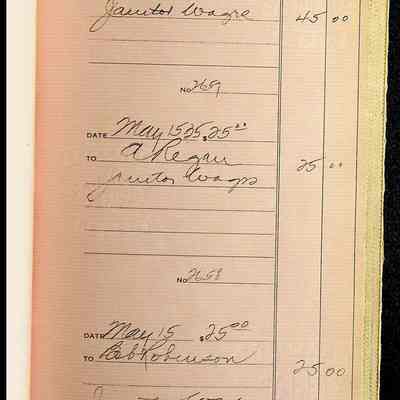 Janitor Wages 45 00
No 2659
DATE May 15 35 $25 00
TO A Regan 25 00
Janitor Wages
No 2658
DATE May 15 $25 00
TO Bob Robinson 25 00